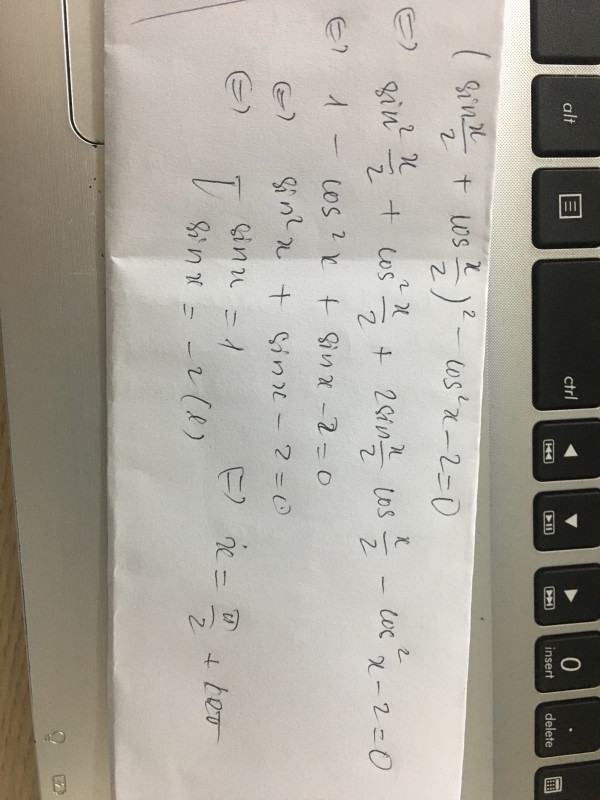 (sin x/2 + cos x/2)² - cos²x - 2 = 0
⇔ sin² x/2 + cos² x/2 + 2sin x/2 cos x/2 - cos²x - 2 = 0
⇔ 1 - cos²x + sinx - 2 = 0
⇔ sin²x + sinx - 2 = 0
⇔ [ sinx = 1
sinx = -2 (l) ⇔ x = π/2 + kπ
alt
ctrl
0
insert
.
delete